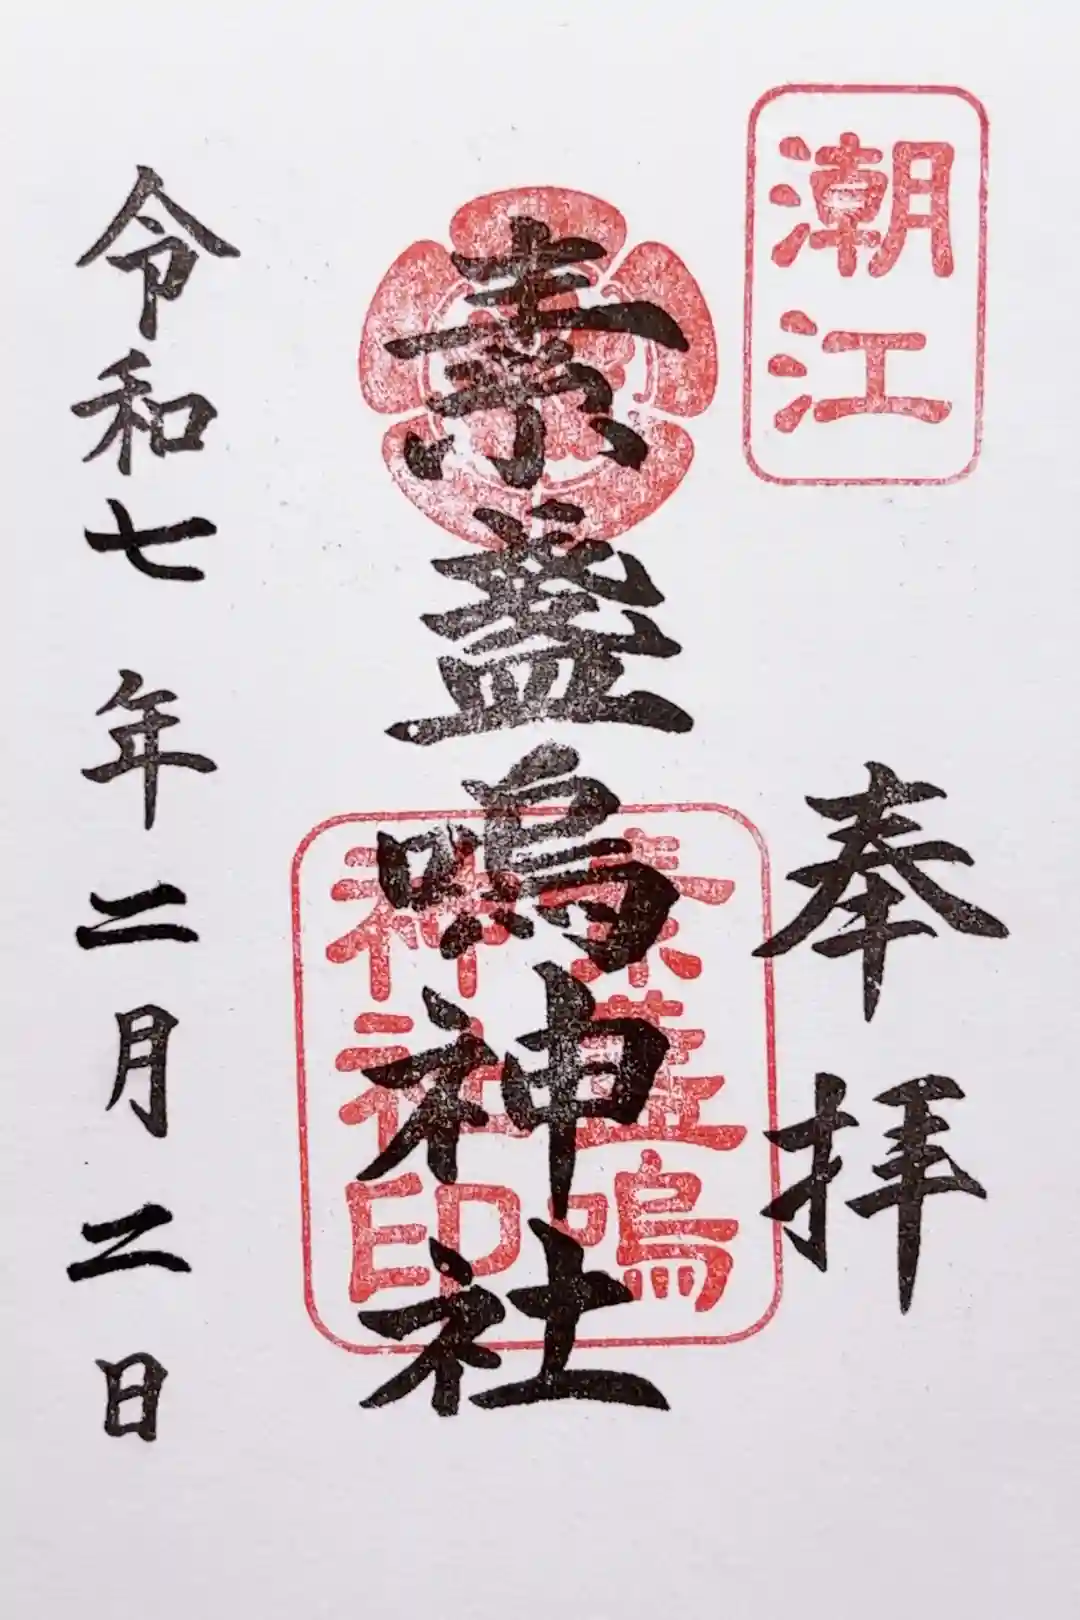 潮江
奉拝
素盞嗚神社
素盞嗚
神社印
令和七年二月二日